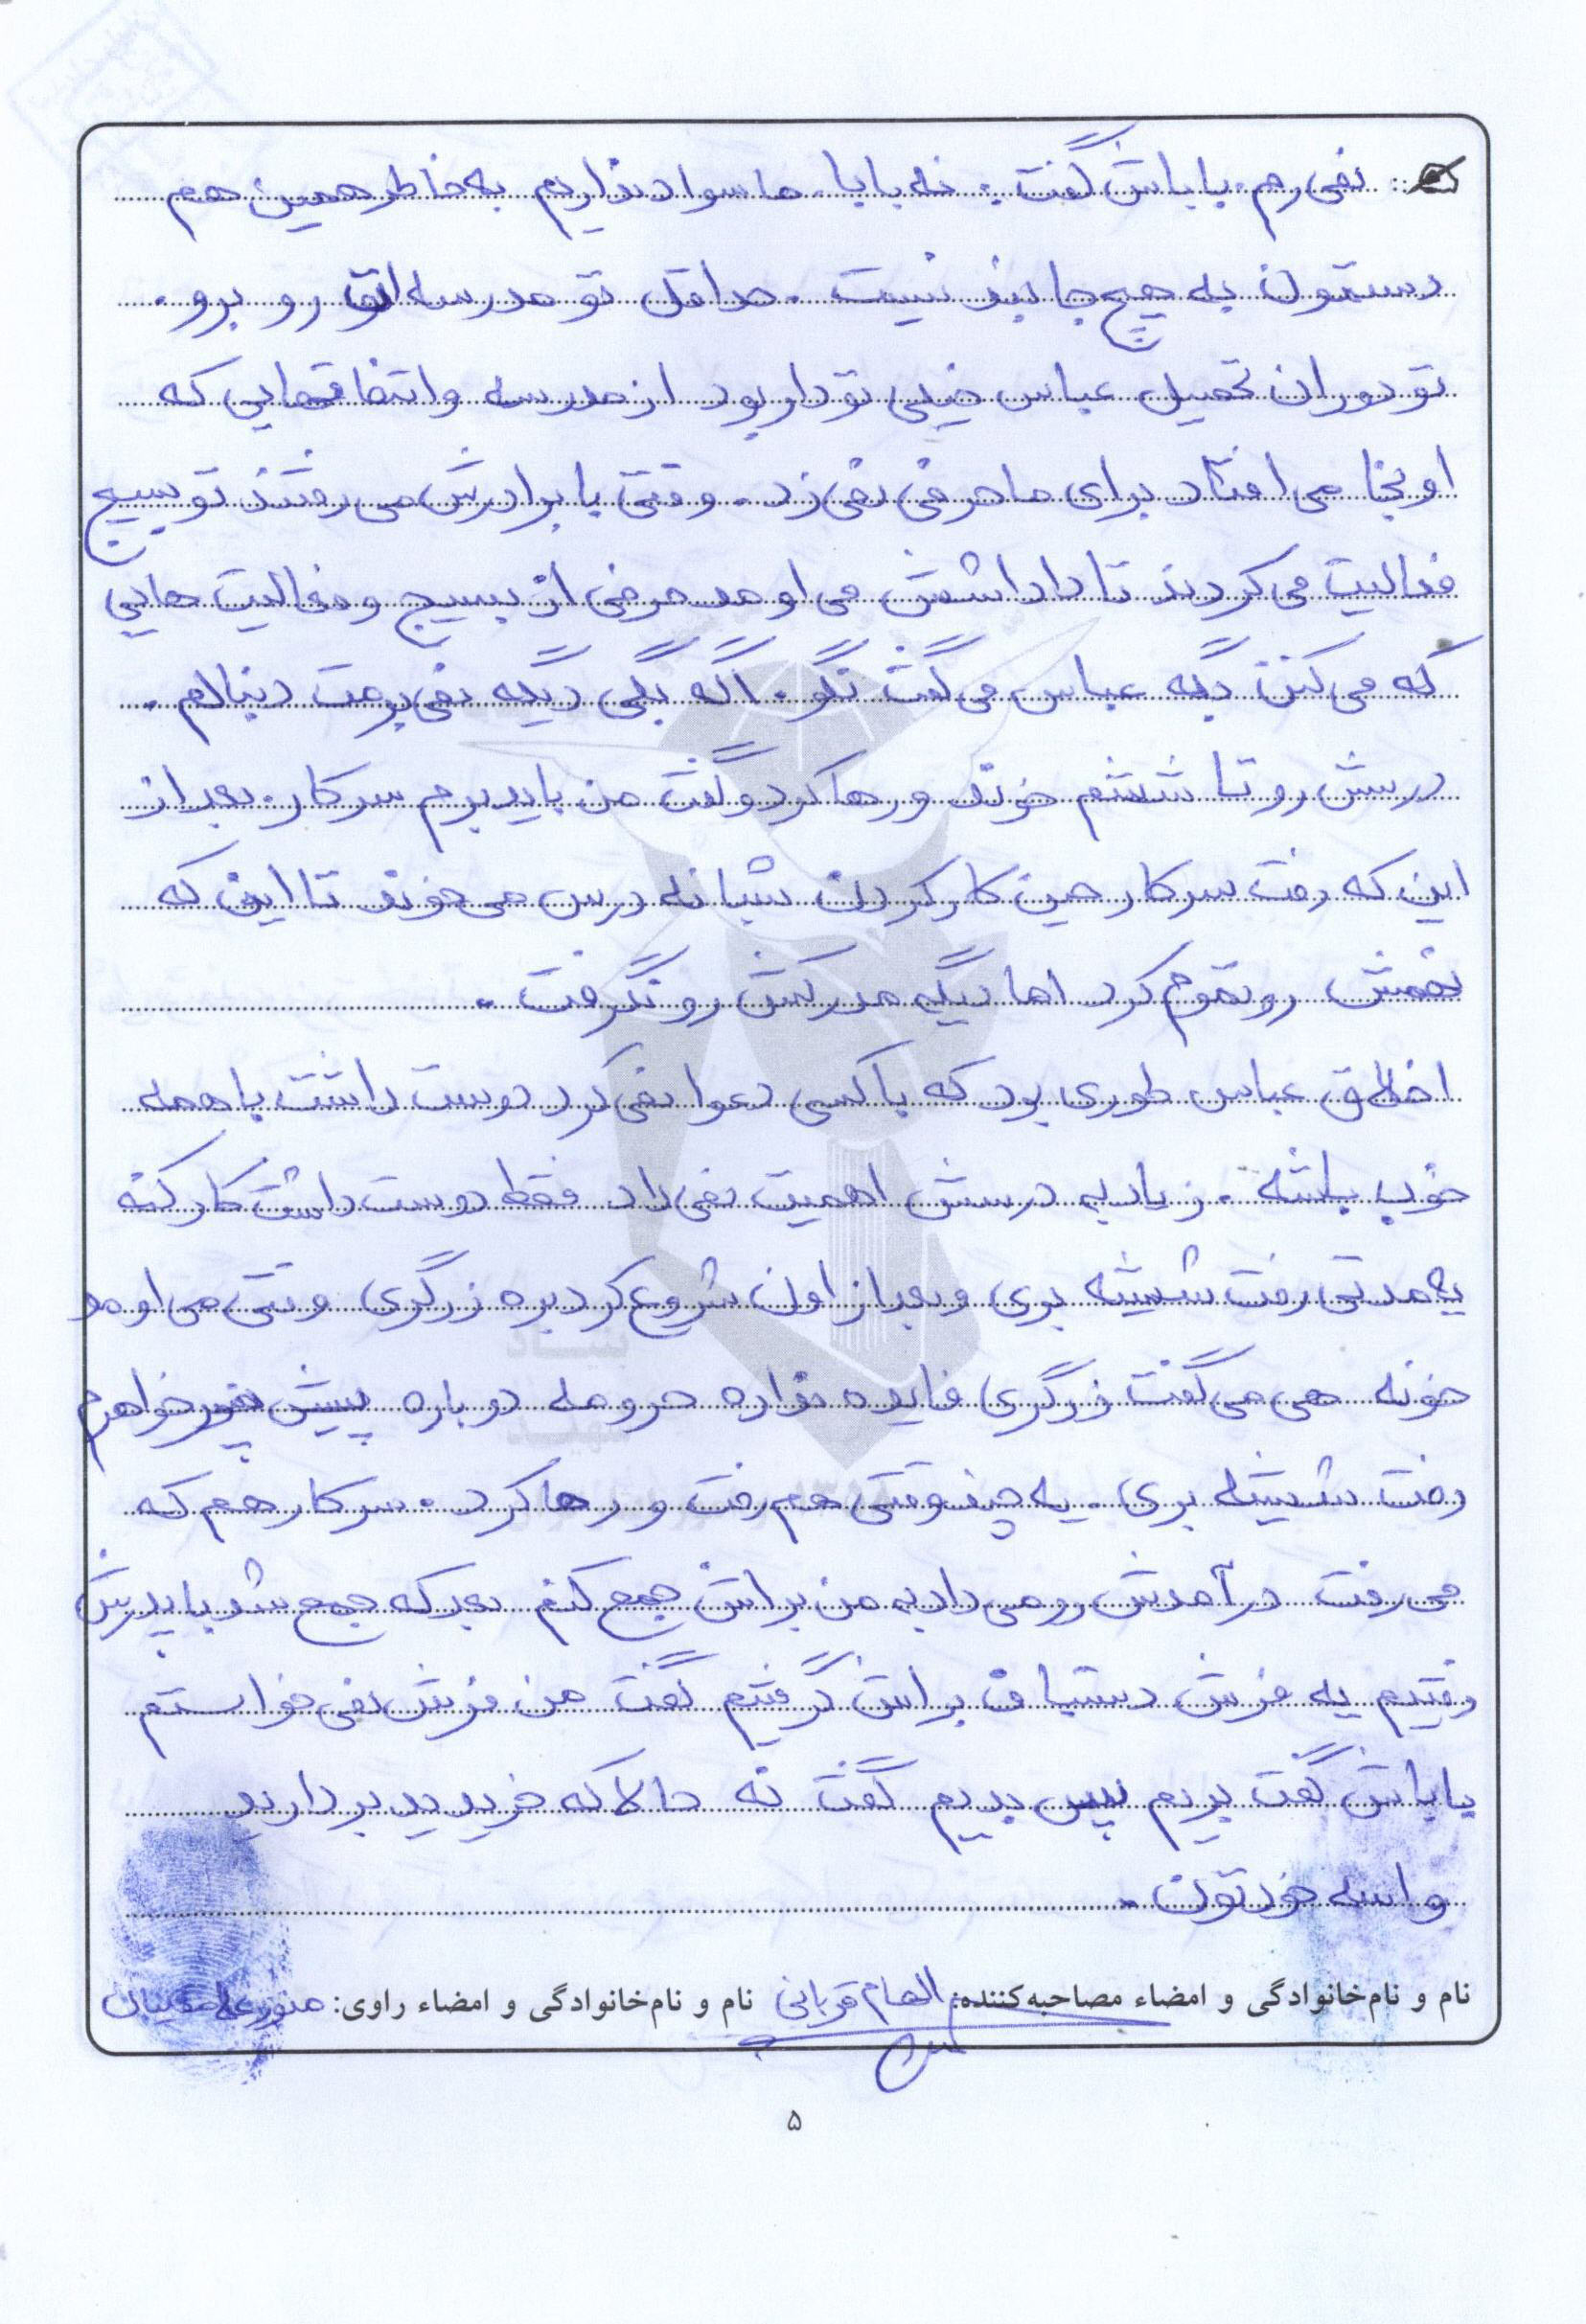 نمی‌رم. باباش گفت: نه بابا. ما سواد نداریم به خاطر همین هم
دستمون به هیچ جا بند نیست. حداقل تو مدرسه‌ات رو برو.
تو دوران تحصیل عباس خیلی تودار بود از مدرسه و اتفاقهایی که
اونجا می‌افتاد برای ما حرفی نمی‌زد. وقتی با برادرش می‌رفتند تو بسیج
فعالیت می‌کردند تا داداشش می‌اومد حرفی از بسیج و فعالیت هایی
که می‌کنن بگه عباس می‌گفت نگو. اگه بگی دیگه نمی‌برمت دنبالم.
درسش رو تا ششم خوند و رها کرد و گفت من باید برم سر کار. بعد از
این که رفت سر کار حین کار کردن شبانه درس می‌خوند تا این که
نهمش رو تموم کرد اما دیگه مدرکش رو نگرفت.
اخلاق عباس طوری بود که با کسی دعوا نمی‌کرد دوست داشت با همه
خوب باشه. زیاد به درسش اهمیت نمی‌داد فقط دوست داشت کار کنه
یه مدتی رفت شیشه بری و بعد از اون شروع کرد بره زرگری وقتی می‌اومد
خونه هی می‌گفت زرگری فایده نداره حرومه دوباره پیش پسر خواهرم
رفت شیشه بری. یه چند وقتی هم رفت و رها کرد. سر کار هم که
می‌رفت درآمدش رو می‌داد به من براش جمع کنم بعد که جمع شد با پدرش
رفتیم یه فرش دستباف براش گرفتیم گفت من فرش نمی‌خواستم
باباش گفت بریم پس بدیم گفت نه حالا که خریدید بردارید
واسه خودتون.
نام و نام‌خانوادگی و امضاء مصاحبه‌کننده: الهام قربانی نام و نام‌خانوادگی و امضاء راوی: منور
۵